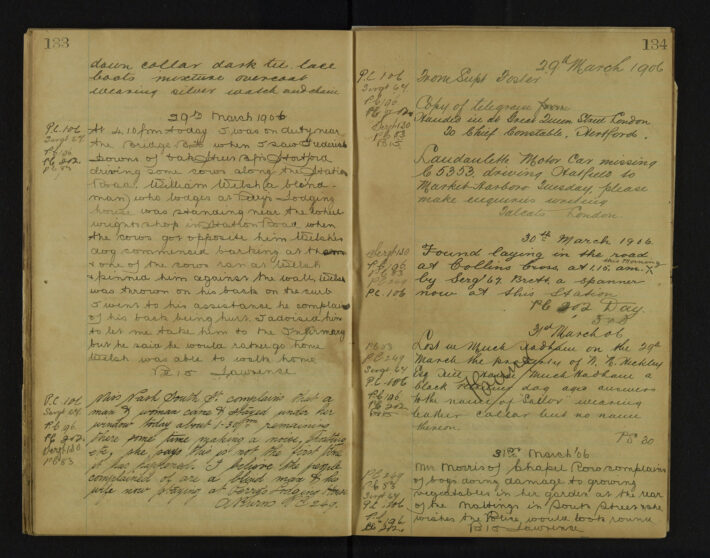 133
down collar dark tie lace
boots mixture overcoat
wearing silver watch and chain
29th March 1906
P.C. 106
Sergt 64
PC 96
PC 202
PC 83
At 4.10 pm today I was on duty near
the Bridge when I saw Frederick
Downs of Oak Street B/n Stortford
driving some cows along the Station
Road. William Welsh (a blind
man) who lodges at Days Lodging
house was standing near the wheel
wrights shop in Station Road when
the cows got opposite him Welshes
dog commenced barking at them
& one of the cows ran at Welsh
& pinned him against the wall, Welsh
was thrown on his back on the curb
I went to his assistance he complained
of his back being hurt. I advised him
to let me take him to the Infirmary
but he said he would rather go home
Welsh was able to walk home
Lawrence
P.C. 106
Sergt 64
PC 96
PC 202
Sergt 130
PC 83
Miss Nash South St complains that a
man & woman came & stayed under her
window today about 1-30pm remaining
there some time making a noise, shouting
etc, she says this is not the first time
it has happened. I believe the people
complained of are a blind man & his
wife now staying at Lodging House
PC 249.
134
29th March 1906
P.C. 106
Sergt 64
PC 96
PC 202
Sergt 130
PC 83
B 15
From Supt Foster
Copy of telegram from
Handed in at Great Queen Street London
To Chief Constable, Hertford.
Landaulette Motor Car missing
5353, driving Hatfield to
Market Harboro Tuesday, please
make enquiries writing
London.
30th March 1906.
Sergt 130
PC 96
PC 83
PC 249
PC 106
Found laying in the road
this morning
at Collins Cross at 1.15. am.
by Sergt 64. Brett, a spanner
now at this Station
PC 202 Day.
31st March 06
PC 83
PC 249
Sergt 64
PC 106
PC 96
PC 202
B15
Lost in Much Hadham on the 29th
March the property of
Esq Much Hadham a
black dog aged answers
to the name of "Sailor" wearing
leather collar but no name
thereon.
PC 30
31st March '06
PC 249
PC 83
Sergt 64
PC 106
PC 96
PC 202
Mrs Morris of Chapel Row complains
of boys doing damage to growing
vegetables in her garden at the rear
of the Maltings in South Street & she
wishes the Police would look round
B 15 Lawrence